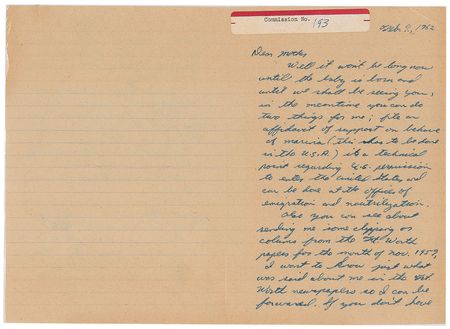 Commission No. 193
Feb. 9, 1962
Dear Mother
Well it won't be long now
until the baby is born and
until we shall be seeing you,
in the meantime you can do
two things for me; file an
affidavit of support on behave
of marina (this has to be done
in the U.S.A.) its a technical
point regarding U.S. permission
to enter the United States and
can be done at the offices of
emigration and
Also you can see about
sending me some clipping or
colums from the Ft. Worth
papers for the month of nov. 1959,
I want to know just what
was said about me in the Ft.
Worth newspapers so I can be
forwarned. If you don't have